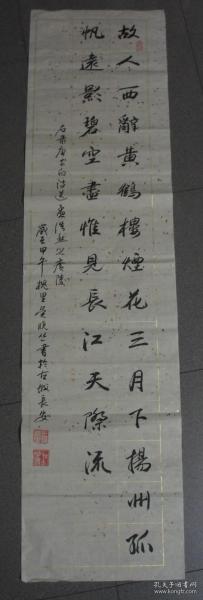 故人西辭黃鶴樓煙花三月下揚州孤
帆遠影碧空盡惟見長江天際流
右錄唐李白詩送孟浩然之廣陵
歲在甲午槐里吳曉芒書於古都長安
孔夫子旧书网